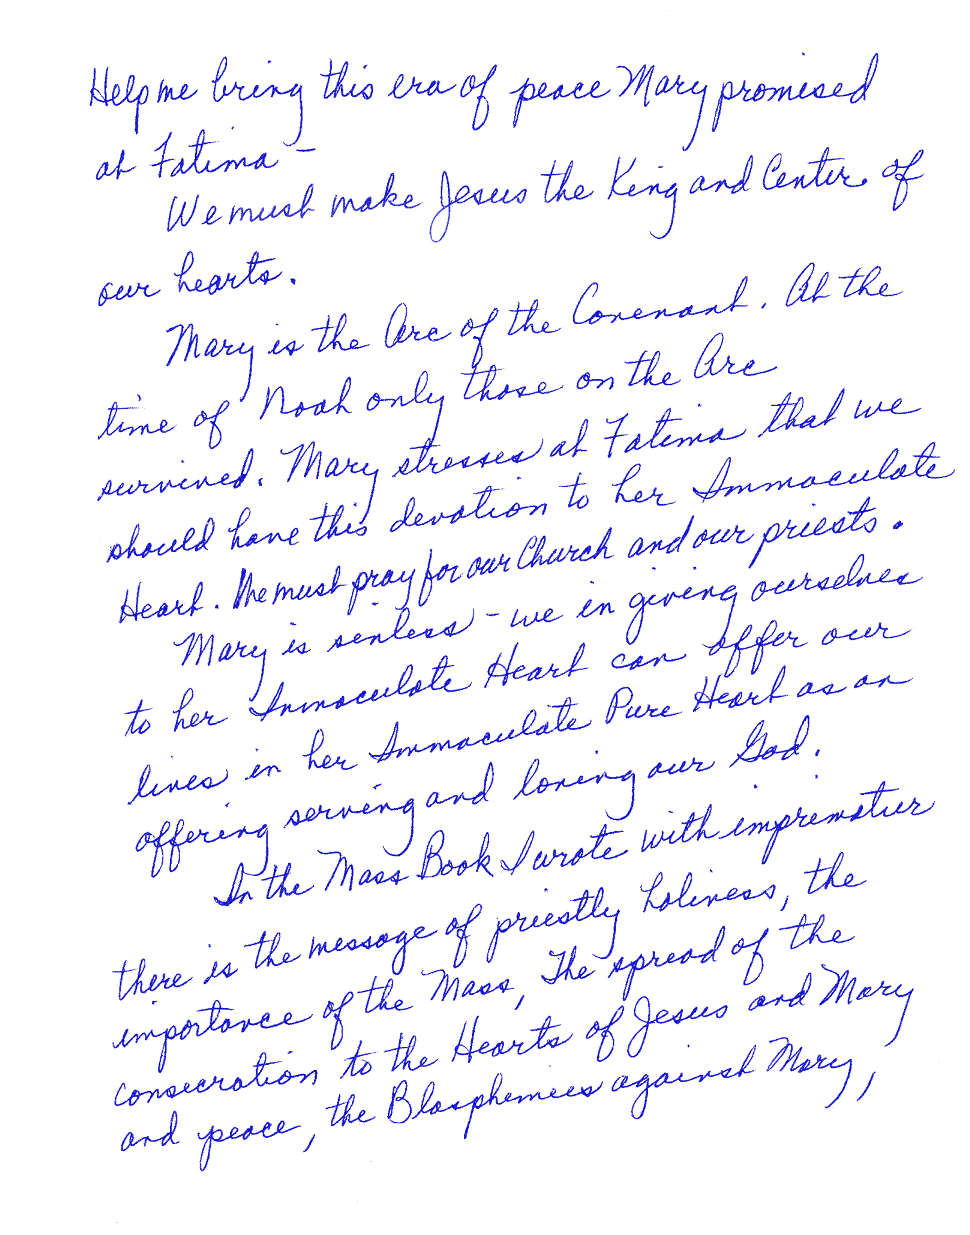 Help me bring this era of peace Mary promised
at Fatima -
We must make Jesus the King and Center of
our hearts.
Mary is the Arc of the Covenant. At the
time of Noah only those on the Arc
survived. Mary stresses at Fatima that we
should have this devotion to her Immaculate
Heart. We must pray for our Church and our priests.
Mary is sinless - we in giving ourselves
to her Immaculate Heart can offer our
lives in her Immaculate Pure Heart as an
offering serving and loving our God.
In the Mass Book I wrote with imprimatur
there is the message of priestly holiness, the
importance of the Mass, The spread of the
consecration to the Hearts of Jesus and Mary
and peace, the Blasphemies against Mary,